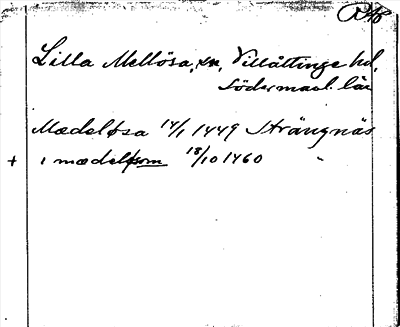 Lilla Mellösa, sn, Villåttinge hd,
Södermanl. län
Mædeløsa 14/1 1449 Strängnäs
+ i mædeløsom 18/10 1460 "